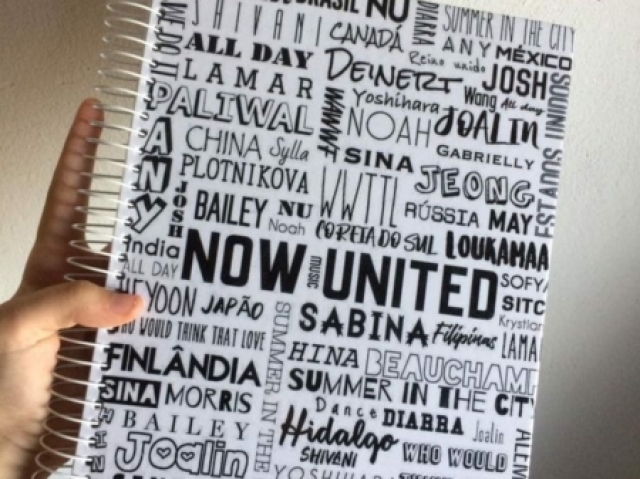 BRASIL NU
WE DO IT
SHIVANI
CANADÁ
DIARRA
SUMMER IN THE CITY
ALL DAY
ANY MÉXICO
Reino unido
LAMAR
DEINERT
JOSH
PALIWAL
Yoshihara
Wang All day
NOAH
JOALIN
WWWF
CHINA Sylla
SINA
GABRIELLY
ANY
PLOTNIKOVA
WWTTL
JEONG
JOSH
BAILEY NU
RÚSSIA MAY
ESTADOS UNIDOS
Noah
COREIA DO SUL
LOUKAMAA
India
NOW UNITED
MUSIC
SOFYA
ALL DAY
SITC
HEYOON JAPÃO
SABINA
Filipinas
Krystian
WHO WOULD THINK THAT LOVE
LAMA
SUMMER IN THE
HINA BEAUCHAMP
FINLÂNDIA
SUMMER IN THE CITY
SINA MORRIS
Dance DIARRA Joalin
BAILEY
Hidalgo
SHIVANI
WHO WOULD
ALEM
Joalin
YOSHIHARA